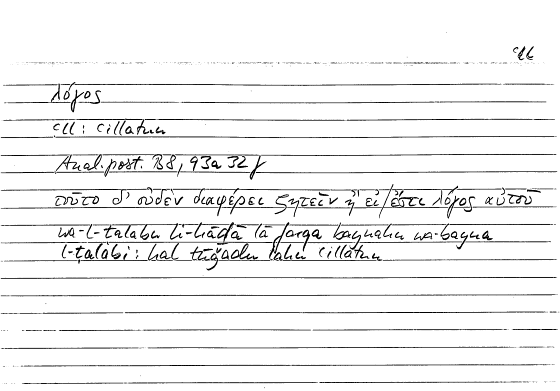 ʿll
λόγος
ʿll: ʿillatun
Anal. post. B 8, 93a 32 f
τοῦτο δ' οὐδὲν διαφέρει ζητεῖν ἢ εἰ/ἔστι λόγος αὐτοῦ
wa-l-ṭalabu li-hāḏā lā farqa baynahu wa-bayna
l-ṭalabi: hal tūǧadu lahu ʿillatun